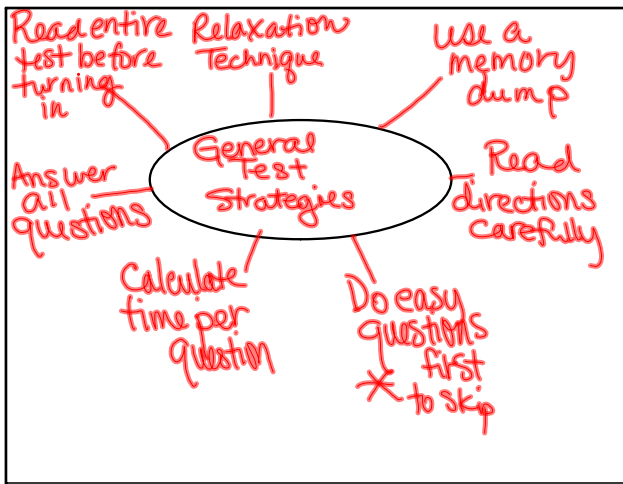 General
Test
Strategies
Read entire
test before
turning
in
Relaxation
Technique
use a
memory
dump
Read
directions
carefully
Do easy
questions
first
* to skip
Calculate
time per
question
Answer
all
questions